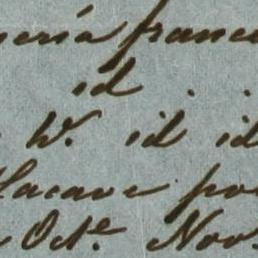 nería franc
id . .
W. id id
Lacave po
Octe. Nov.